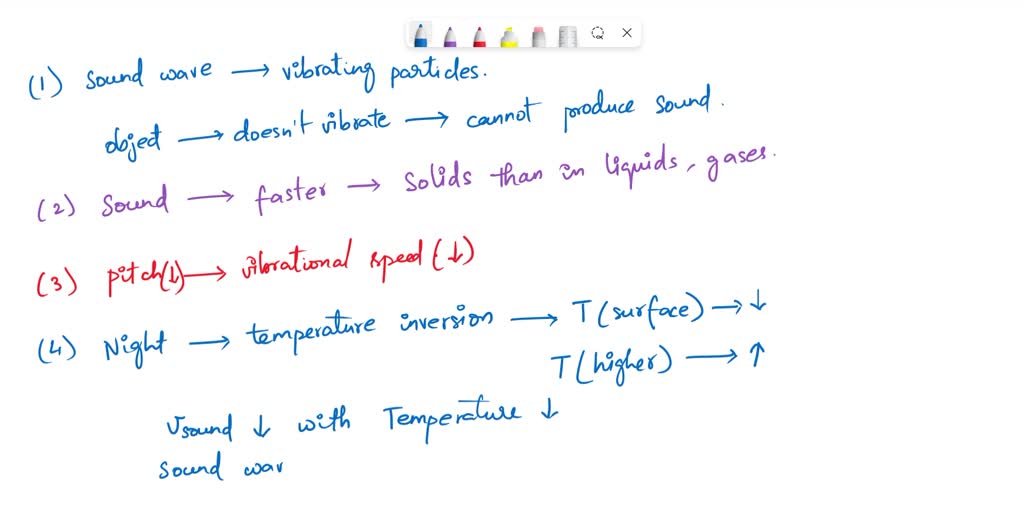 (1) Sound wave → vibrating particles.
object → doesn't vibrate → cannot produce sound.
(2) Sound → faster → Solids than in liquids, gases.
(3) pitch(↓) → vibrational speed (↓)
(4) Night → temperature inversion → T (surface) → ↓
T (higher) → ↑
Vsound ↓ with Temperature ↓
Sound wav